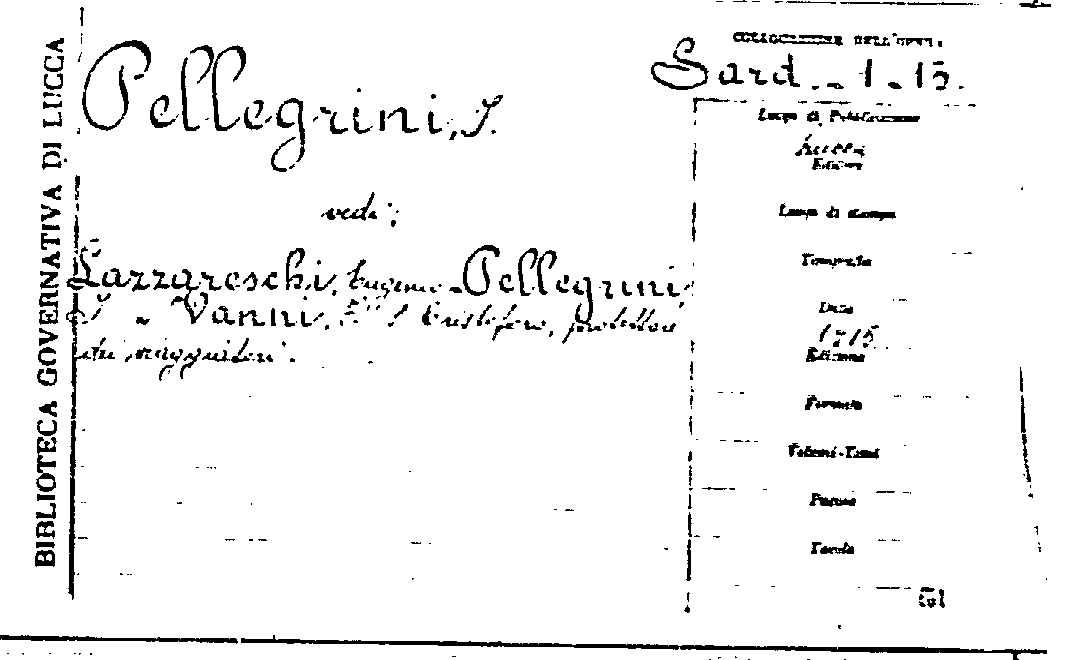 BIBLIOTECA GOVERNATIVA DI LUCCA
Pellegrini, I.
vedi:
Lazzareschi, Eugenio - Pellegrini,
I - Vanni, F. S. Cristoforo, protettore
dei viaggiatori.
COLLOCAZIONE DELL'OPERA
Sard. - 1 - 15.
Luogo di Pubblicazione
Lucca
Editore
Luogo di stampa
Tipografia
Data
Edizione
Formato
Volumi-Tomi
Pagine
Tavole